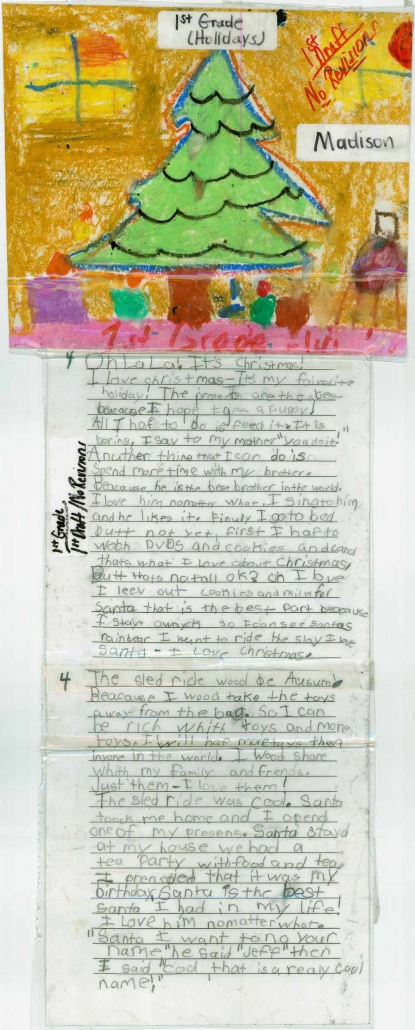 1st Grade
(Holidays)
1st
Draft
No Revision!
Madison
1st Grade
4 Oh LaLa! It's Christmas!
I love christmas-Its my faivorite
holiday! The are the
beacause I hope to a
All I haf to do is feed it. It is
boring, I say to my mother "you do it!"
Another thing that I can do is
Spend more time with my brother.
Beacause he is the best brother in the world.
I love him nomatter what. I sing to him
and he likes it. Finuly I go to bed
butt not yet, first I haf to
woch DVDS and cookies and
thats what I love about Christmas
Butt thats notall ok? oh I love
I leev out cookies and milk for
Santa that is the best part beacause
I stay so I can see santas
raindeer I want to ride the slay I love
Santa - I Love Christmas.
1st Grade
1st Draft/No Revision!
4 The sled ride wood be
Beacause I wood take the toys
away from the bag. So I can
be rich whith toys and more
toys. I will haf more toys then
inyone in the world. I wood share
whith my family and frends.
Just them-I love them!
The sled ride was cool. Santa
toock me home and I opend
one of my presens. Santa stayd
at my house we had a
tea Party with food and tea
I that it was my
birthday, Santa is the best
santa I had in my life!
I Love him nomatter what.
"Santa I want to no your
name" he said "Jeff" then
I said "cool that is a realy cool
name!"